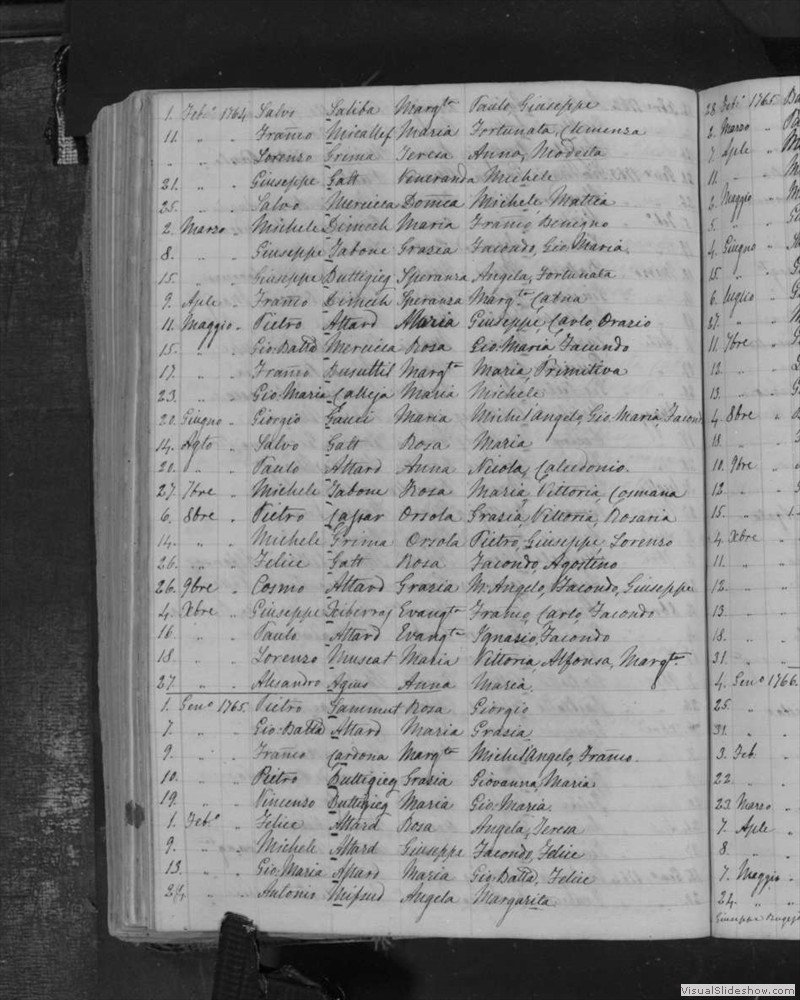 1. Feb.o 1764 Salvo Saliba Margta Paulo, Giuseppe
11. " " Franco Micallef Maria Fortunata, Clemenza
" " " Lorenzo Grima Teresa Anna, Modesta
21. " " Giuseppe Gatt Veneranda Michele
25. " " Salvo Mercieca Domca Michele Mattia
2. Marzo " Michele Dimech Maria Franco, Benigno
8. " " Giuseppe Tabone Grazia Facondo, Gio Maria
15. " " Giuseppe Buttigieg Speranza Angela, Fortunata
9. Aple " Franco Dimech Speranza Margta
11. Maggio " Pietro Attard Maria Giuseppe, Carlo, Orazio
15. " " Gio: Batta Mercieca Rosa Gio: Maria Facundo
17. " " Franco Busuttil Margta Maria, Primitiva
23. " " Gio: Maria Calleja Maria Michele
20. Giugno " Giorgio Gauci Maria Michel'Angelo, Gio Maria, Facond
14. Agto " Salvo Gatt Rosa Maria
20. " " Paulo Attard Anna Nicola, Calcedonio
27. 7bre " Michele Tabone Rosa Maria, Vittoria, Cosmana
6. 8bre " Pietro Caspar Orsola Grazia, Vittoria, Rosaria
14. " " Michele Grima Orsola Pietro, Giuseppe, Lorenzo
26. " " Felice Gatt Rosa Facondo, Agostino
26. 9bre " Cosmo Attard Grazia M: Angelo, Facondo, Giuseppe
4. Xbre " Giuseppe Xiberras Evangta Franco, Carlo, Facondo
16. " " Paulo Attard Evangta Ignazio, Facondo
18. " " Lorenzo Muscat Maria Vittoria, Alfonsa, Margta
27. " " Alesandro Agius Anna Maria
1. Geno 1765. Pietro Sammut Rosa Giorgio
7. " " Gio: Batta Attard Maria Grazia
9. " " Franco Cardona Margta Michel'Angelo, Franco.
10. " " Pietro Buttigieg Grazia Giovanna, Maria
19. " " Vincenzo Buttigieg Maria Gio: Maria
1. Feb.o " Felice Attard Rosa Angela, Teresa
9. " " Michele Attard Giuseppe Facondo, Felice
13. " " Gio: Maria Attard Maria Gio: Batta, Felice
24. " " Antonio Mifsud Angela Margarita
28 Feb.o 1765
2. Marzo "
7 Aple "
11. " "
2. Maggio "
5. " "
4. Giugno "
15. " "
6. Luglio "
27. " "
11. 7bre "
12. " "
13. " "
4. 8bre "
18. " "
10. 9bre "
12. " "
15. " "
4. Xbre "
11. " "
12. " "
13. " "
18. " "
31. " "
4. Geno 1766.
25. " "
31. " "
3. Feb. "
22. " "
23 Marzo "
7. Aple "
8. " "
7. Maggio "
24. " "
Giuseppe
VisualSlideshow.com